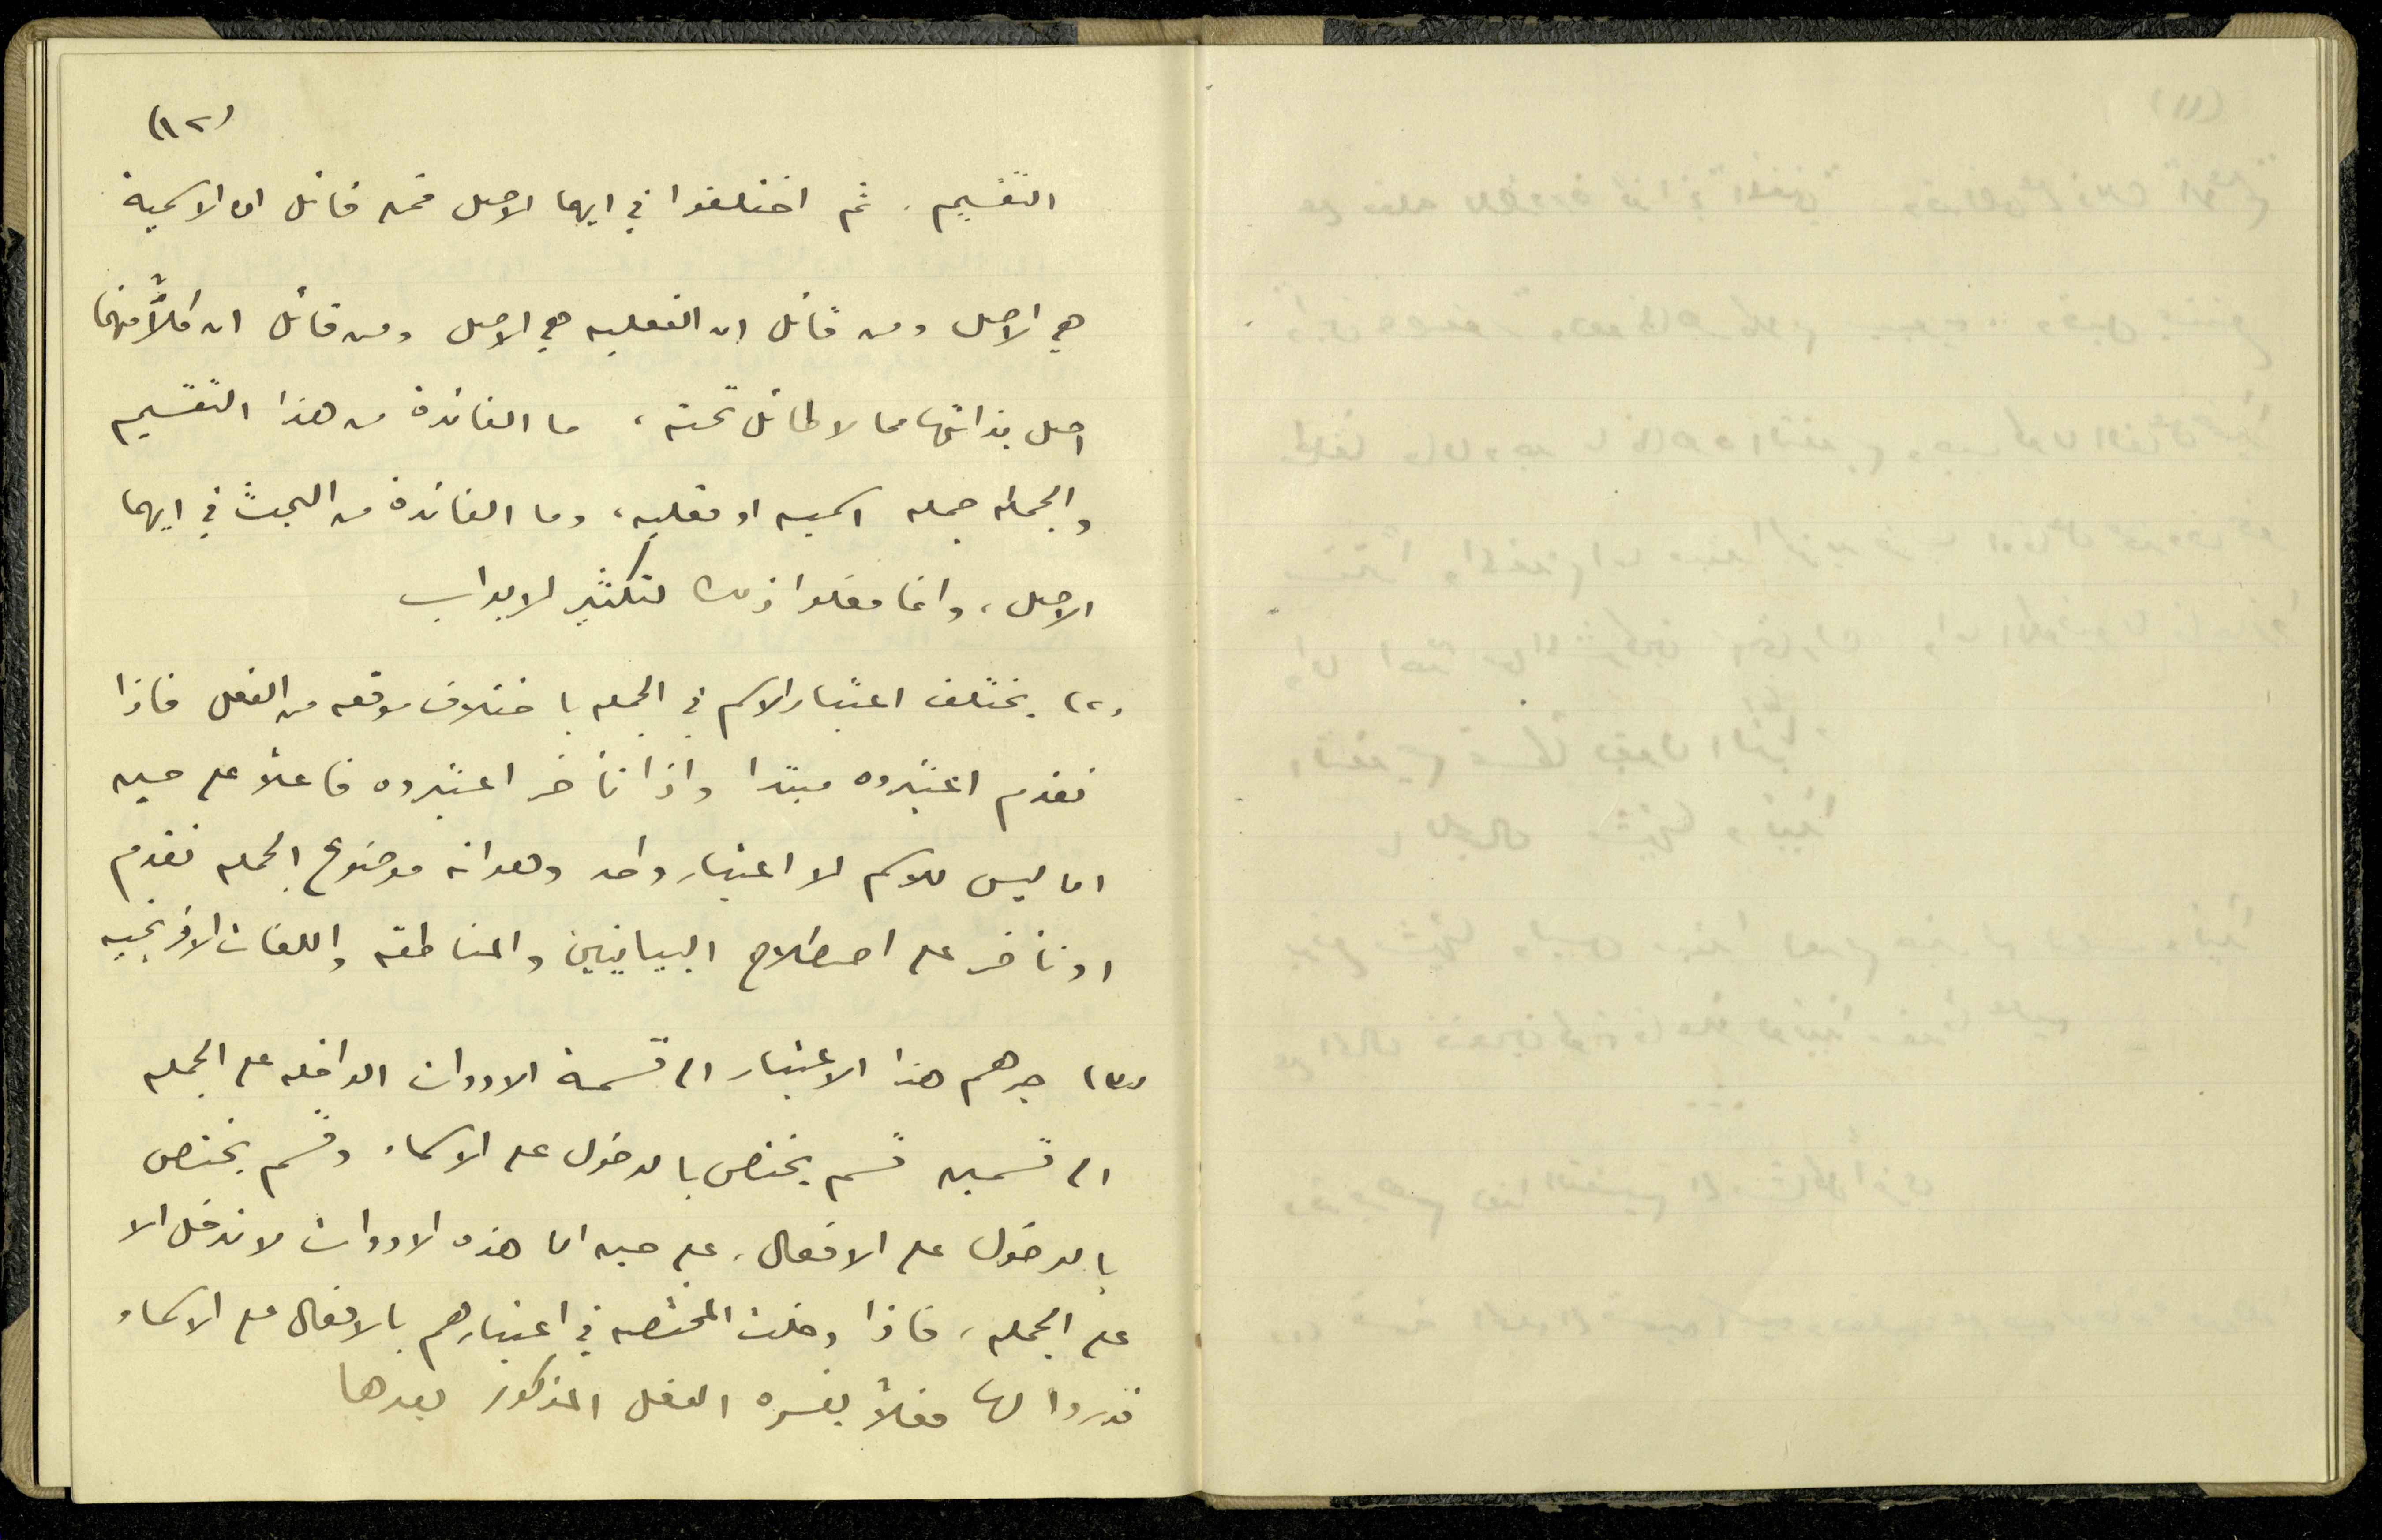 (١٢)
التقسيم. ثم اختلفوا في ايهما الاصل فمن قائل ان الاسمية
هي الاصل ومن قائل ان الفعليه هي الاصل ومن قائل ان كلاًّ منهما
اصل بذاتها مما لا طائل تحته، ما الفائدة من هذا التقسيم
والجمله جمله اسميه او فعليه، وما الفائدة من البحث في ايهما
الاصل، وانما فعلوا ذلك لتكثير الابواب
(٢) يختلف اعتبار الاسم في الجمله باختلاف موقعه من الفعل فاذا
تقدم اعتبروه مبتدا واذا تأخر اعتبروه فاعلاً على حين
انا ليس للاسم الا اعتبار واحد وهو انه موضوع الجمله تقدم
او تأخر على اصطلاح البيانيين والمناطقه واللغات الافرنجيه
(٣) جرهم هذا الاعتبار الى قسمة الادوات الداخله على الجمله
الى قسمين قسم يختص بالدخول على الاسماء وقسم يختص
بالدخول على الافعال، على حين ان هذه الادوات لا تدخل الا
على الجمله، فاذا دخلت المختصه في اعتبارهم بالافعال على الاسماء
قدروا لها فعلاً يفسره الفعل المذكور بعدها